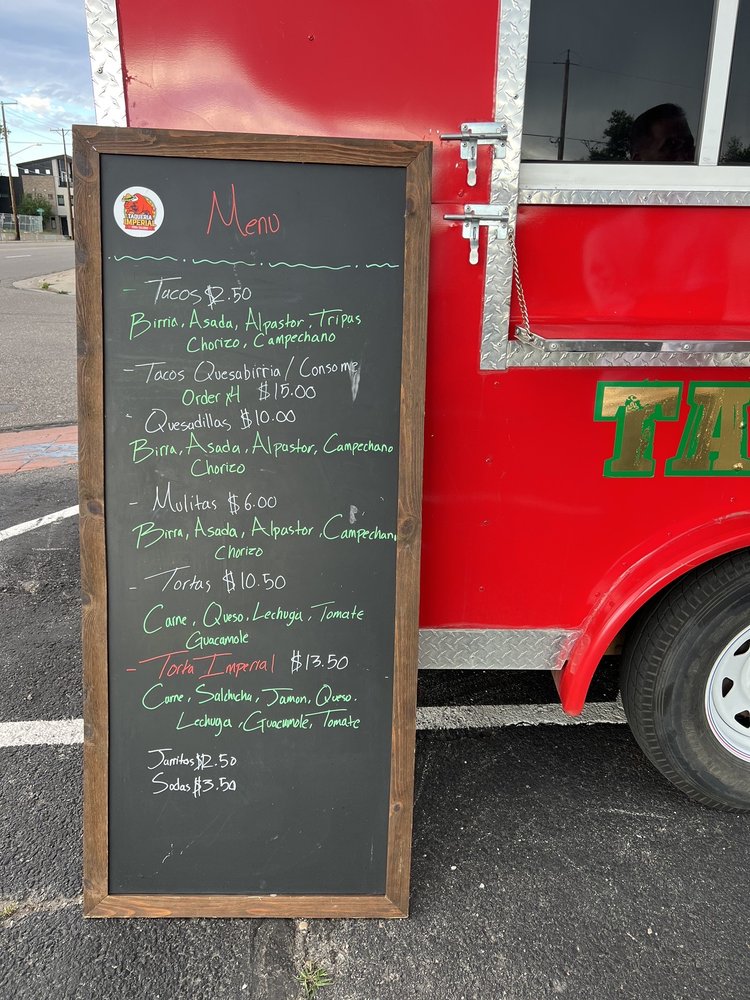 TAQUERIA
IMPERIAL
Menu
- Tacos $2.50
Birria, Asada, Alpastor, Tripas
Chorizo, Campechano
- Tacos Quesabirria / Consome
Order x4 $15.00
- Quesadillas $10.00
Birra, Asada, Alpastor, Campechano
Chorizo
- Mulitas $6.00
Birra, Asada, Alpastor, Campechano
Chorizo
- Tortas $10.50
Carne, Queso, Lechuga, Tomate
Guacamole
- Torta Imperial $13.50
Carne, Salchicha, Jamon, Queso.
Lechuga, Guacamole, Tomate
Jarritos $2.50
Sodas $3.50
TA